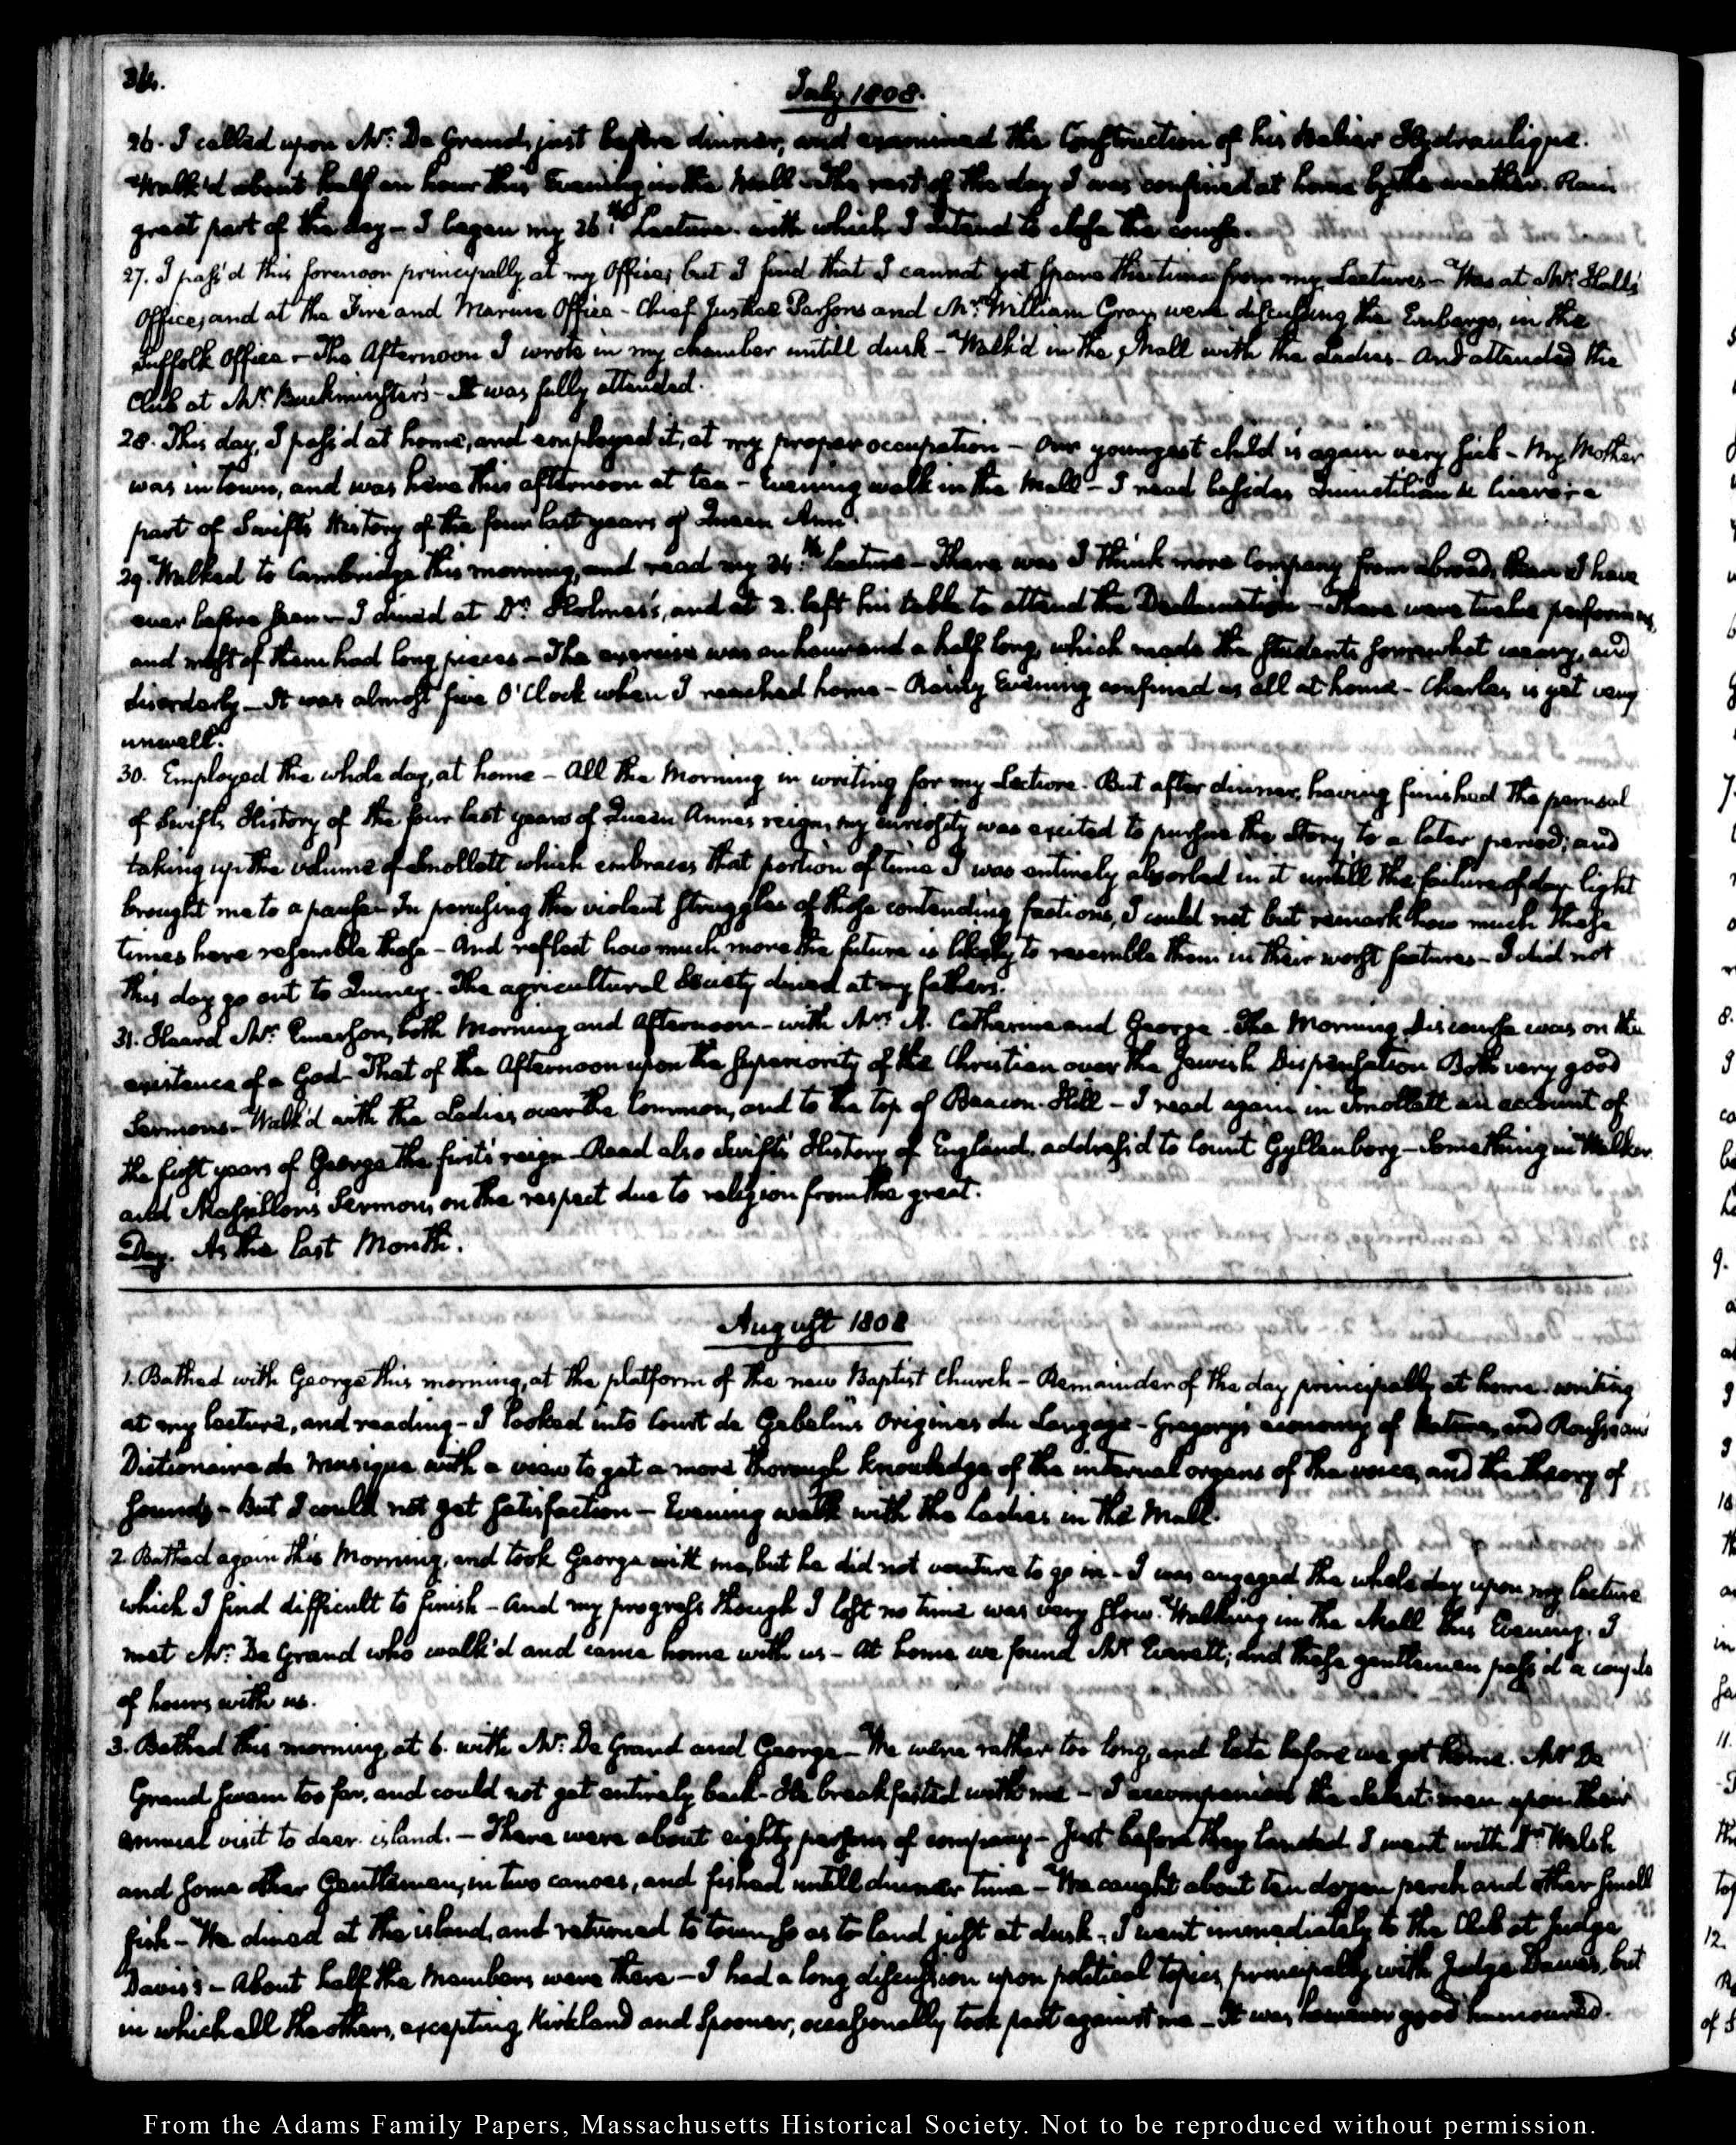 34.
July 1808.
26. I called upon Mr. De Grand, just before dinner, and examined the Construction of his Belier Hydraulique.
Walk'd about half an hour this Evening in the Mall. The rest of the day I was confined at home by the weather. Rain
great part of the day – I began my 26th. Lecture. with which I intend to close the course.
27. I pass'd this forenoon principally at my Office; but I find that I cannot yet spare the time from my Lectures – Was at Mr. Hall's
Office, and at the Fire and Marine Office – Chief Justice Parsons and Mr. William Gray, were discussing the Embargo, in the
Suffolk Office – The Afternoon I wrote in my chamber untill dusk – Walk'd in the Mall with the Ladies – And attended the
Club at Mr. Buckminster's – It was fully attended.
28. This day, I pass'd at home, and employed it, at my proper occupation – Our youngest child is again very sick – My Mother
was in town, and was here this afternoon at tea – Evening walk in the Mall – I read besides Quinctilian & Cicero; a
part of Swift's History of the four last years of Queen Ann.
29. Walked to Cambridge this morning, and read my 24th. Lecture – There was I think more Company from abroad, than I have
ever before seen – I dined at Dr. Holmes's, and at 2. left his table to attend the Declamation – There were twelve performers,
and most of them had long pieces – The exercise was an hour and a half long, which made the students somewhat weary, and
disorderly – It was almost five O'Clock when I reached home – Rainy Evening confined us all at home – Charles, is yet very
unwell.
30. Employed the whole day, at home – All the Morning in writing for my Lecture. But after dinner, having finished the perusal
of Swift's History of the four last years of Queen Anne's reign, my curiosity was excited to pursue the Story, to a later period; and
taking up the volume of Smollett which embraces that portion of time I was entirely absorbed in it untill the failure of day-light
brought me to a pause – In perusing the violent struggles of those contending factions, I could not but remark how much these
times have resemble those – And reflect how much more the future is likely to resemble them in their worst features – I did not
this day go out to Quincy – The agricultural Society dined at my father's.
31. Heard Mr. Emerson, both Morning and Afternoon – with Mrs. A. Catherine and George – The Morning Discourse was on the
existence of a God – That of the Afternoon upon the superiority of the Christian over the Jewish Dispensation Both very good
Sermons – Walk'd with the Ladies over the Common, and to the top of Beacon-Hill – I read again in Smollett an account of
the first years of George the first's reign – Read also Swift's History of England, address'd to Count Gyllenborg – Something in Walker
and Massillon's Sermon, on the respect due to religion from the great.
Day. As the last Month.
August 1808
1. Bathed with George this morning, at the platform of the new Baptist Church – Remainder of the day principally at home – writing
at my lecture, and reading – I looked into Court de Gebelin's Origines du Langage – Gregory's economy of Nature, and Rousseau's
Dictionaire de Musique with a view to get a more thorough knowledge of the internal organs of the voice, and the theory of
sounds – But I could not get satisfaction – Evening walk with the Ladies in the Mall.
2. Bathed again this Morning, and took George with me, but he did not venture to go in – I was engaged the whole day upon my lecture
which I find difficult to finish – And my progress though I lost no time was very slow. Walking in the Mall this Evening. I
met Mr. De Grand who walk'd and came home with us – At home we found Mr. Everett; and these gentlemen pass'd a couple
of hours with us.
3. Bathed this morning, at 6. with Mr. De Grand and George – We were rather too long, and late before we got home. Mr. De
Grand swam too far, and could not get entirely back – He breakfasted with me – I accompanied the Select-men upon their
annual visit to deer island. – There were about eighty persons of company – Just before they landed I went with Dr. Welsh
and some other Gentlemen, in two canoes, and fished untill dinner time – We caught about ten dozen perch and other small
fish – We dined at the island, and returned to town, so as to land just at dusk – I went immediately to the Club at Judge
Davis's – About half the Members were there – I had a long discussion upon political topics, principally with Judge Dawes, but
in which all the others, excepting Kirkland and Spooner, occasionally took part against me – It was however good humoured.
From the Adams Family Papers, Massachusetts Historical Society. Not to be reproduced without permission.